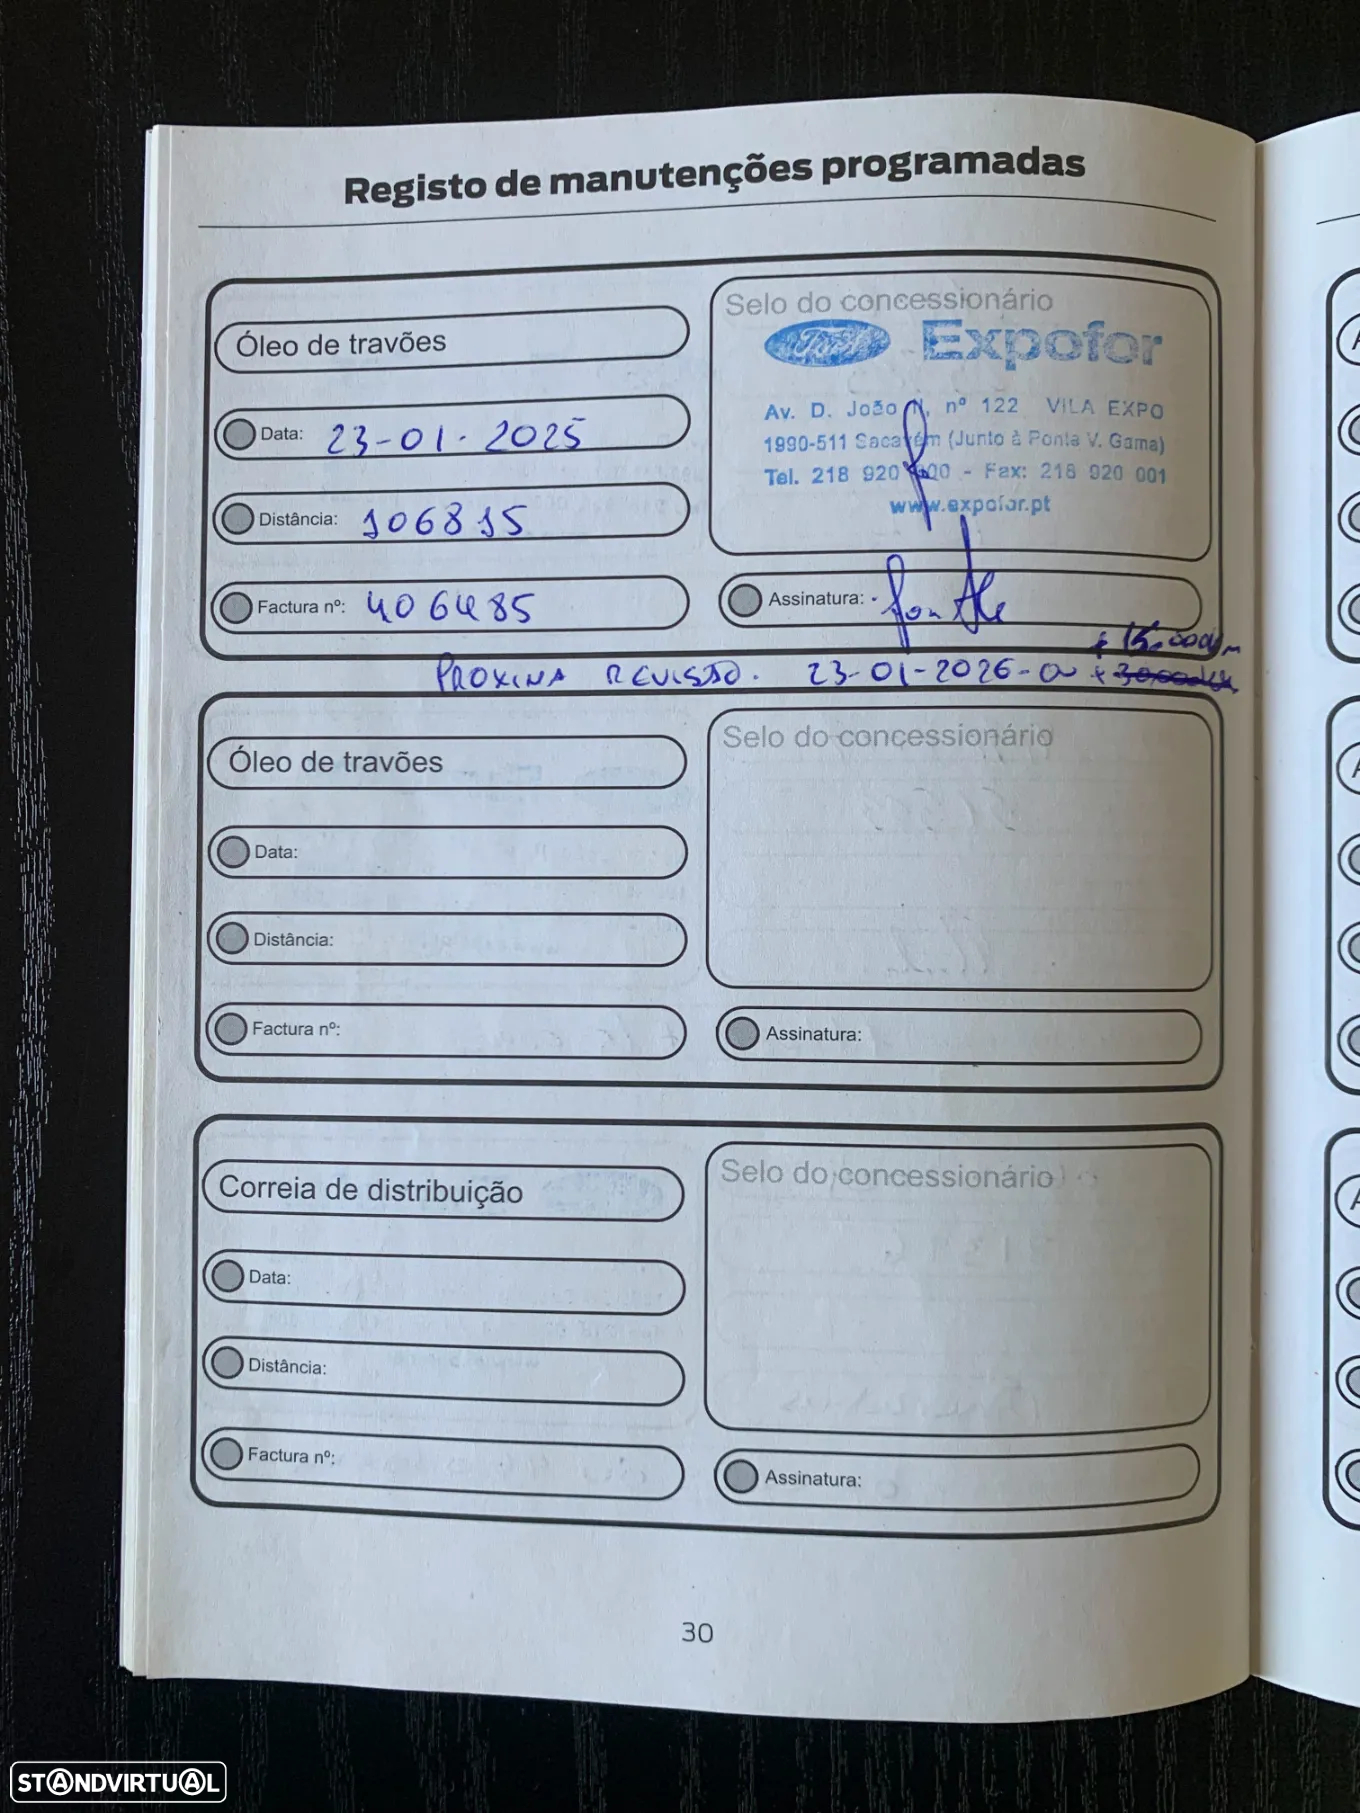 Registo de manutenções programadas
Óleo de travões
Data: 23-01-2025
Distância: 106815
Factura nº: 406485
Selo do concessionário
Ford Expofor
Av. D. João II, nº 122 VILA EXPO
1990-511 Sacavém (Junto à Ponte V. Gama)
Tel. 218 920 000 - Fax: 218 920 001
www.expofor.pt
Assinatura:
+ 15.000Km
PROXIMA REVISÃO. 23-01-2026-ou + 30.000Km
Óleo de travões
Data:
Distância:
Factura nº:
Selo do concessionário
Assinatura:
Correia de distribuição
Data:
Distância:
Factura nº:
Selo do concessionário
Assinatura:
30
STANDVIRTUAL